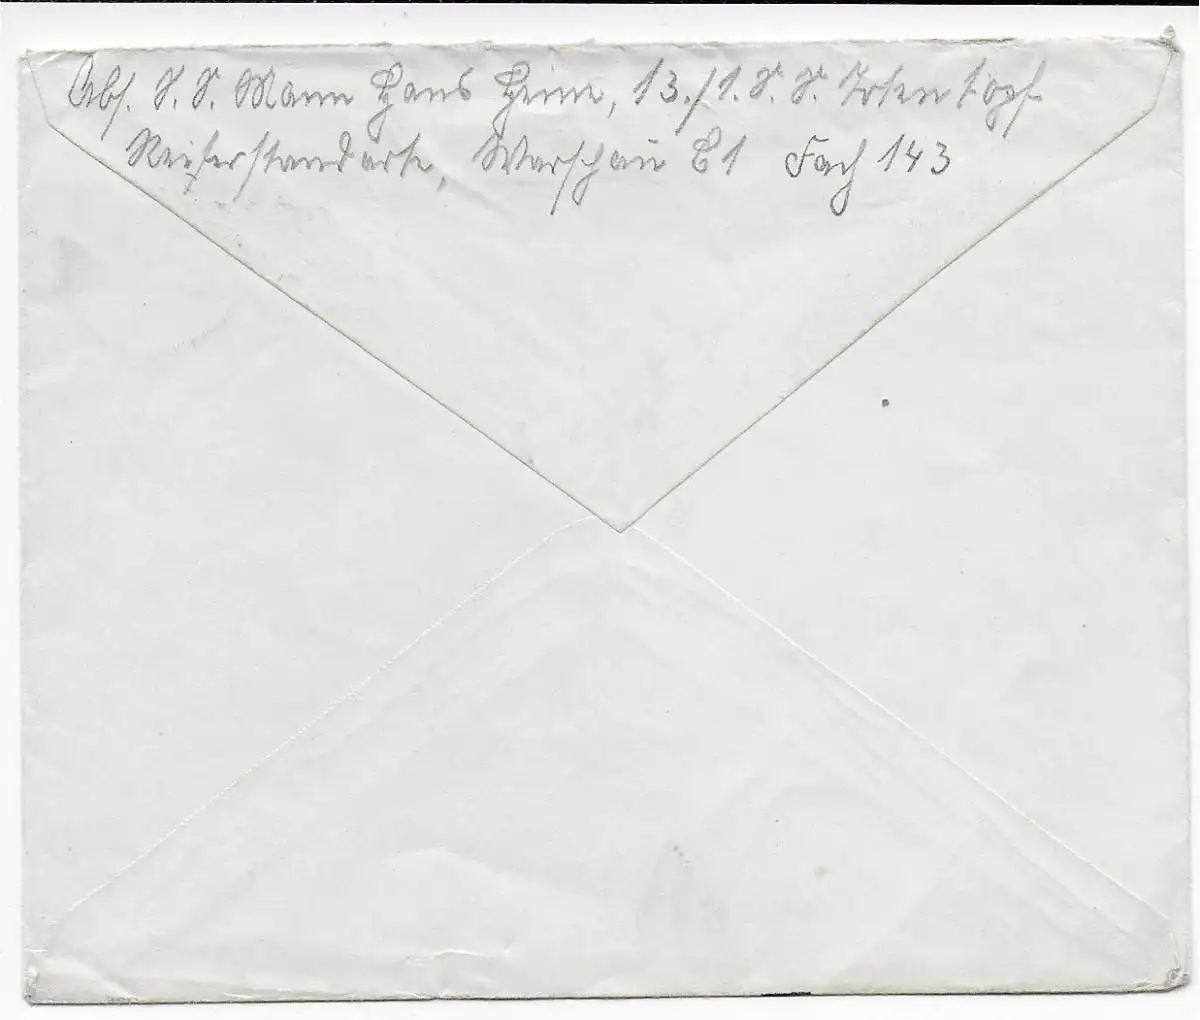 Abs. S. S. Mann Hans Heine, 13./1. S. S. Totenkopf-
Reiterstandarte, Warschau C1 Fach 143